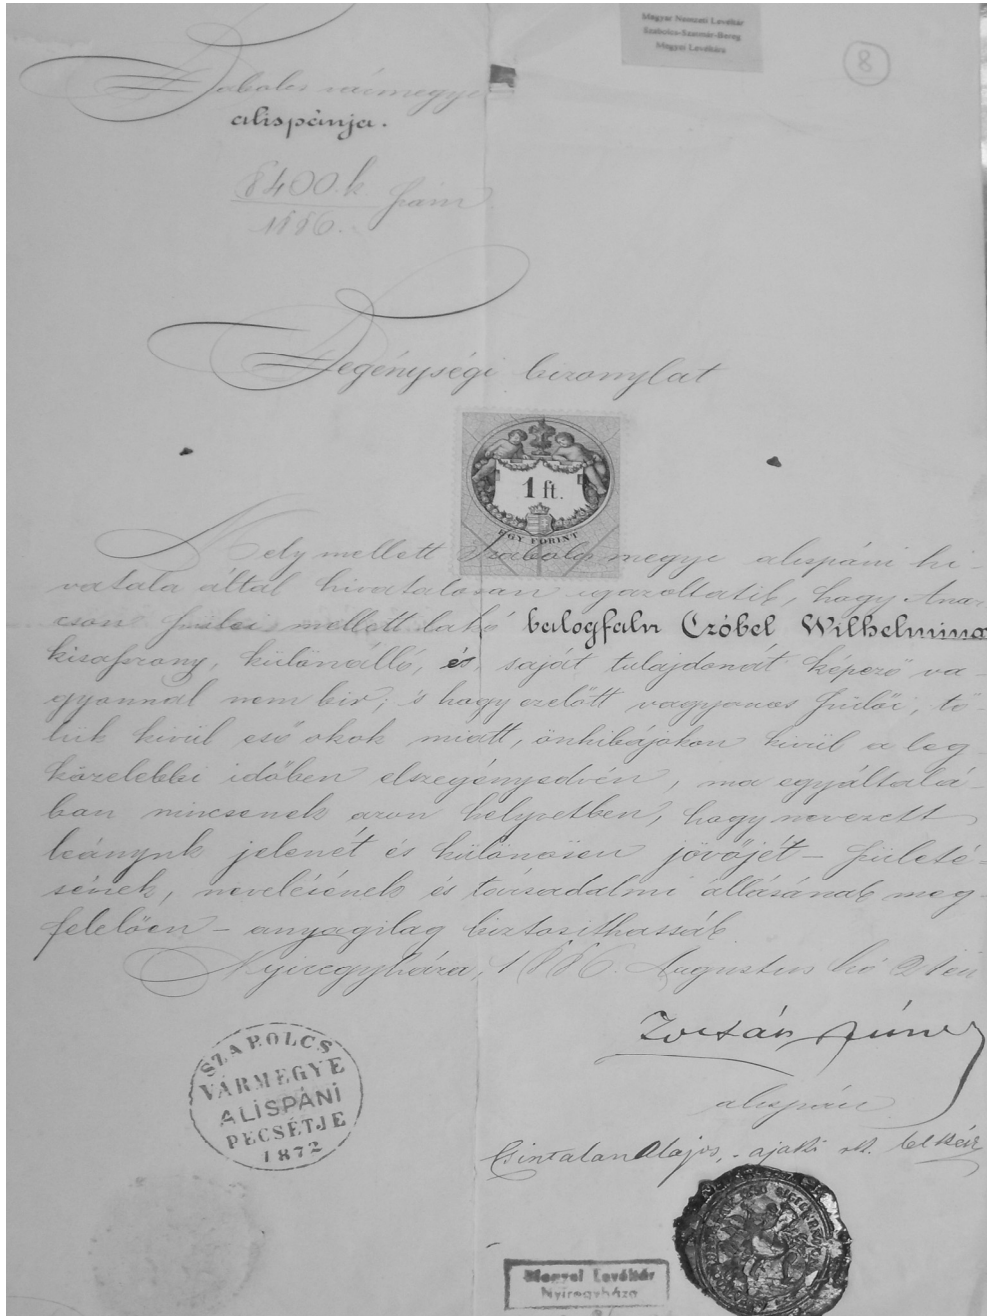 Magyar Nemzeti Levéltár
Szabolcs-Szatmár-Bereg
Megyei Levéltára
8
Szabolcs vármegye
alispánja.
8400.k. szám
1886.
Szegénységi bizonylat
1 ft.
EGY FORINT
Mely mellett Szabolcs megye alispáni hi-
vatala által hivatalosan igazoltatik, hogy Ana-
rcson szülei mellett lakó balogfalvi Czóbel Wilhelmina
kisasszony, különálló, és saját tulajdonát képező va-
gyonnal nem bir; s hogy ezelőtt vagyonos szülői, tő-
lük kivül eső okok miatt, önhibájokon kivül a leg
közelebbi időben elszegényedvén, ma egyáltalá-
ban nincsenek azon helyzetben, hogy nevezett
leányuk jelenét és különösen jövőjét – születé-
sének, nevelésének és társadalmi állásának meg-
felelően – anyagilag biztosithassák.
Nyiregyháza, 1886. Augusztus hó 21én
Zoltán János
alispán
Csintalan Alajos, ajaki rk. lelkész
SZABOLCS
VÁRMEGYE
ALISPÁNI
PECSÉTJE
1872
Megyei Levéltár
Nyíregyháza